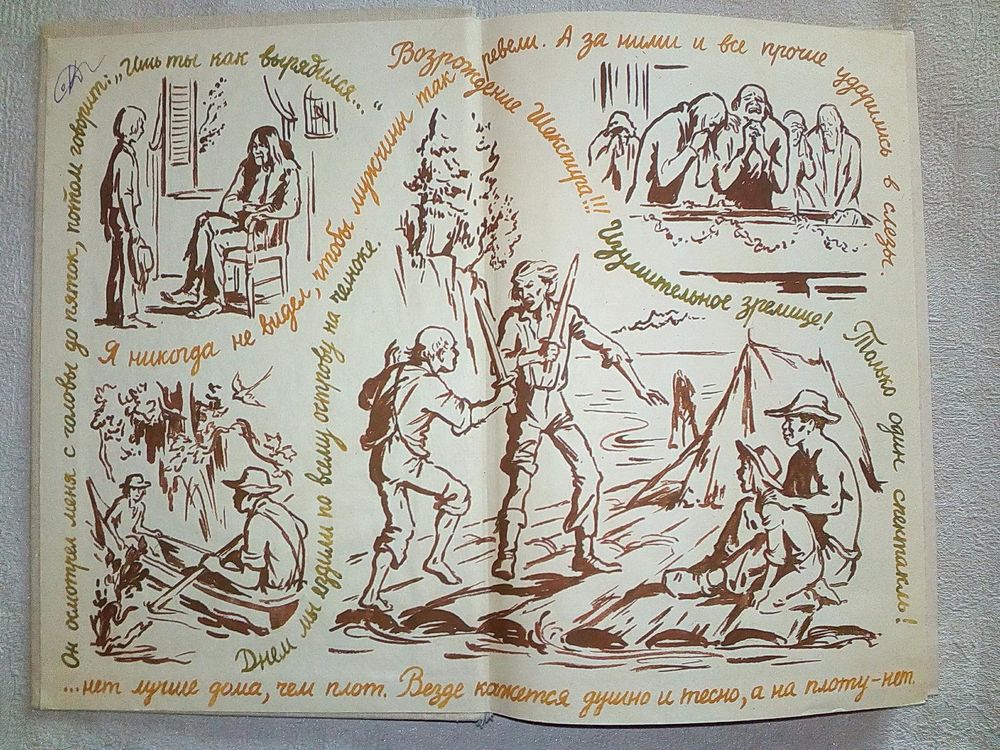 Он осмотрел меня с головы до пяток, потом говорит: „Ишь ты как вырядился..."
Я никогда не видел, чтобы мужчины так ревели. А за ними и все прочие ударились в слезы.
Возрождение Шекспира!!! Изумительное зрелище!
Только один спектакль!
Днем мы ездили по всему острову на челноке.
...нет лучше дома, чем плот. Везде кажется душно и тесно, а на плоту-нет.